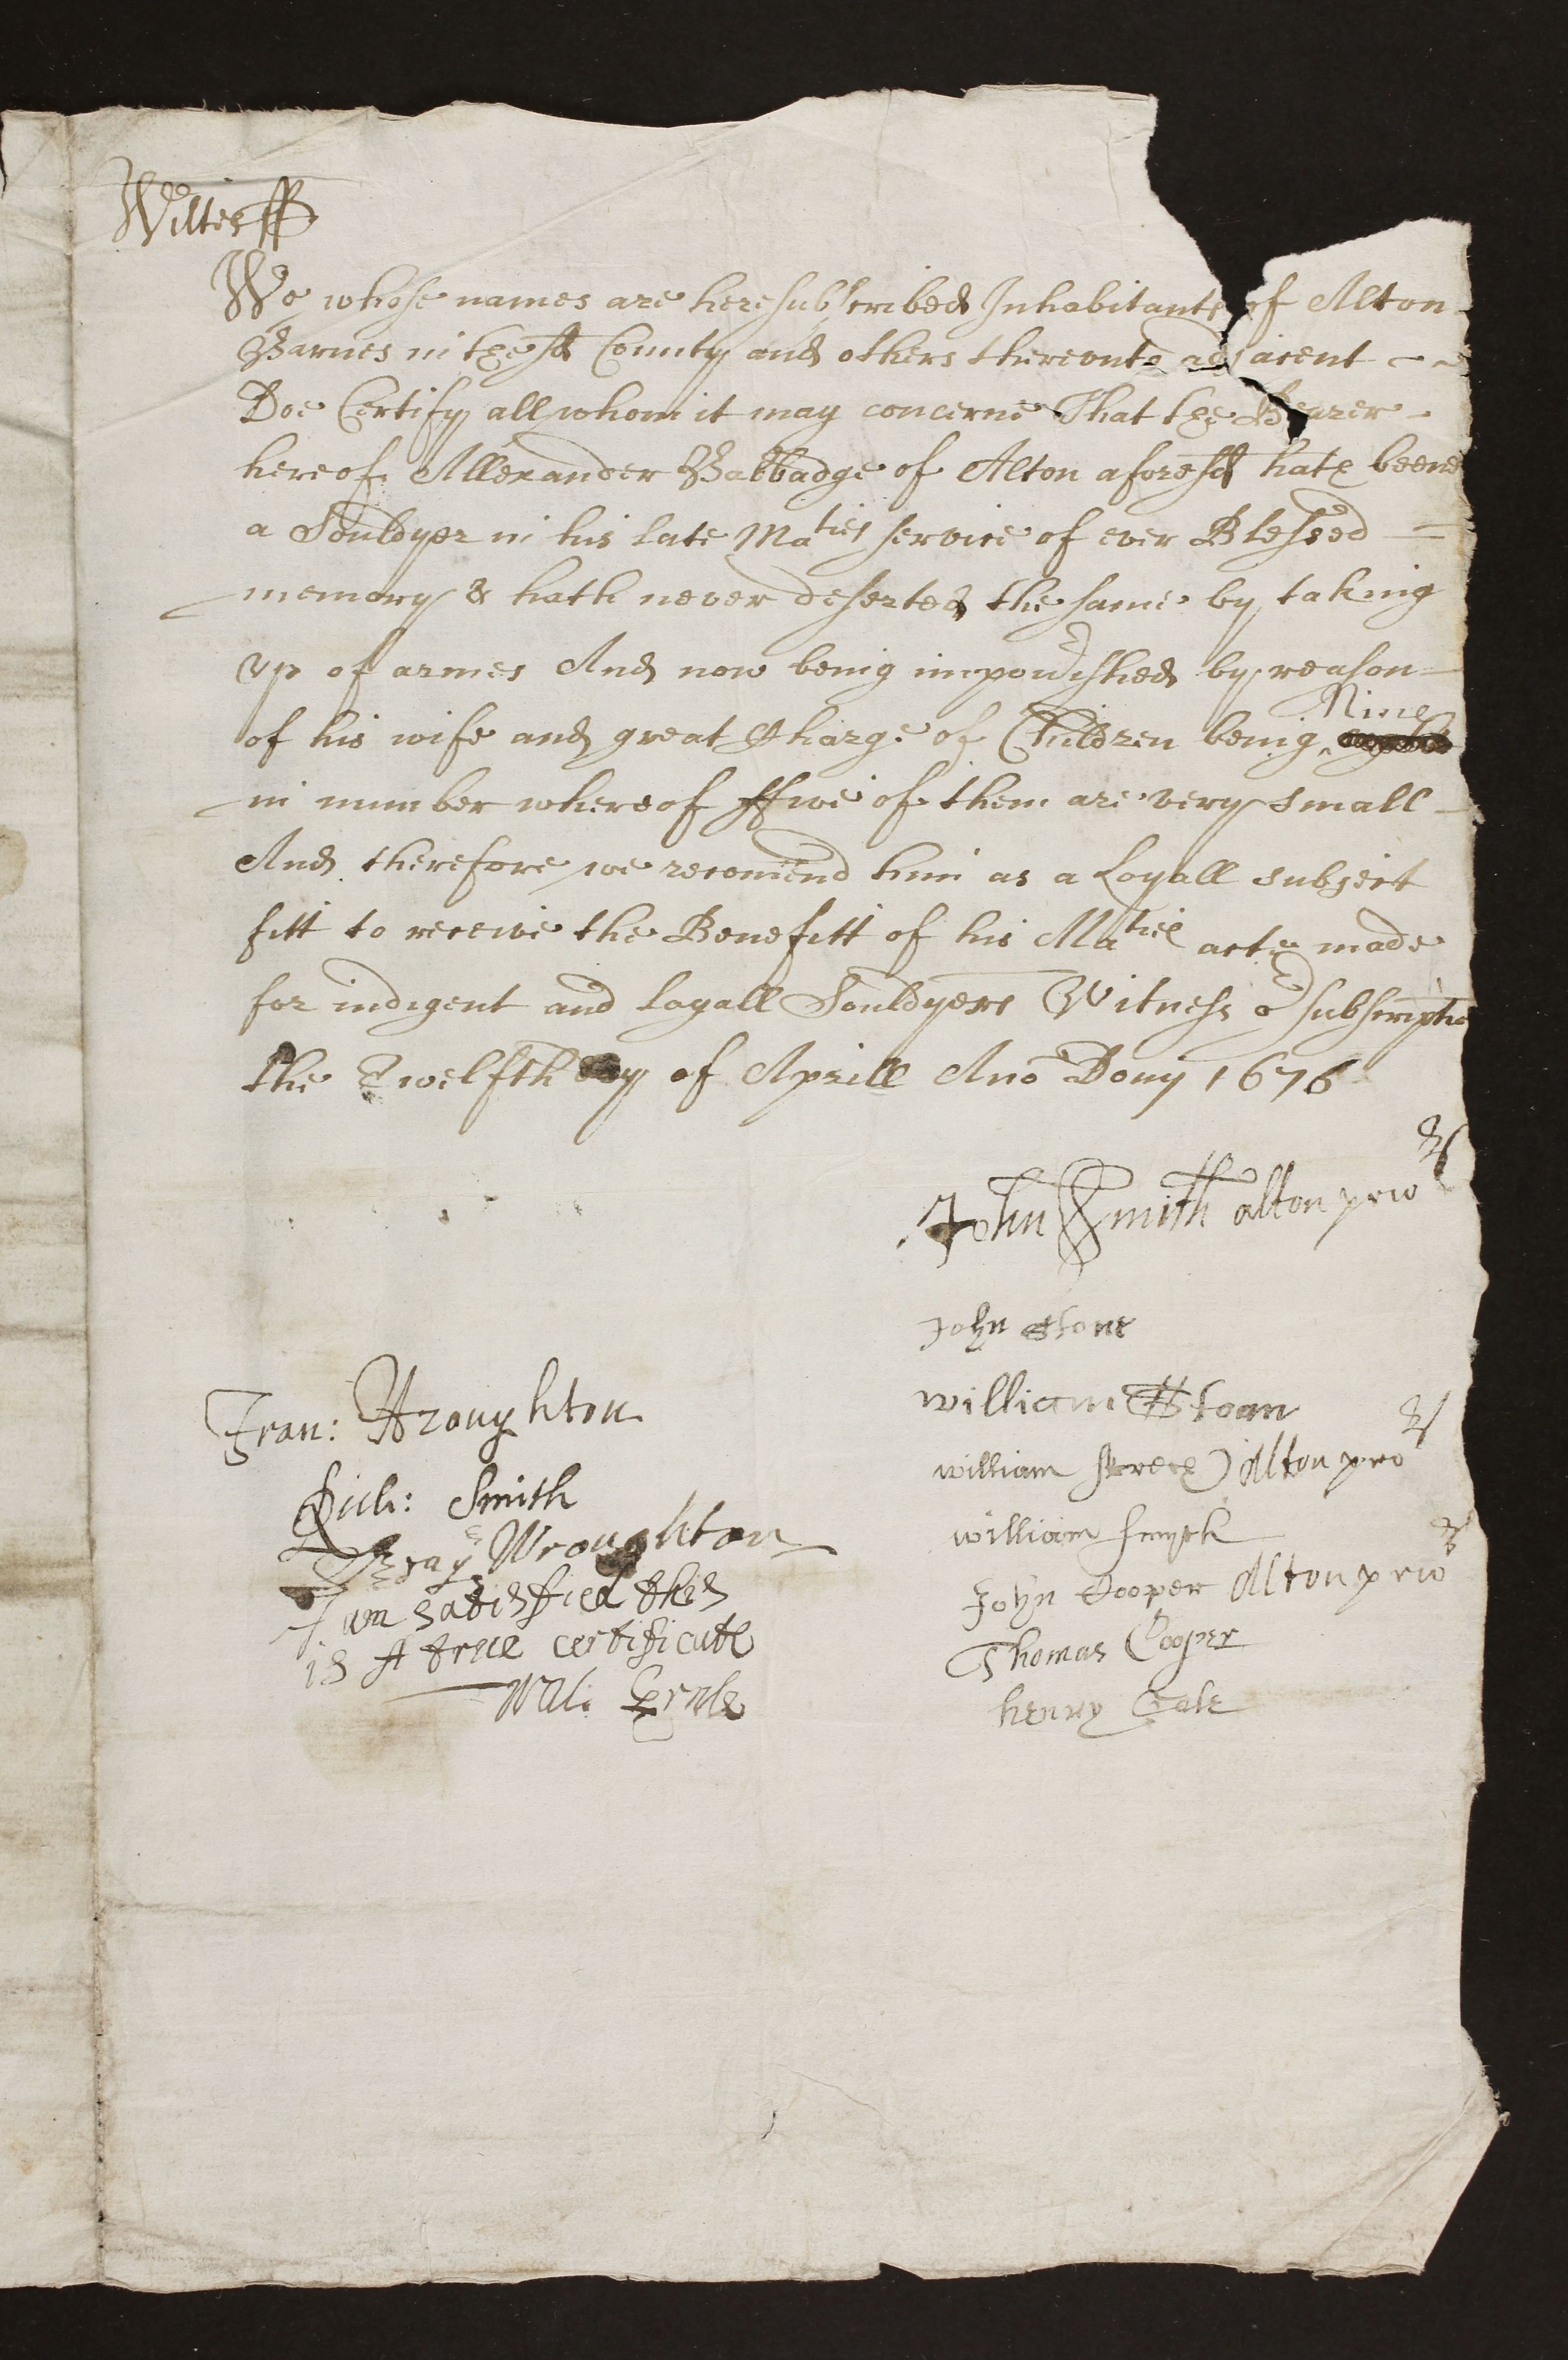 Wiltes ss
We whose names are heresubscribed Inhabitants of Alton
Barnes in the sd County and others thereunto adjacent
Doe Certify all whom it may concerne That the Bearer
hereof Allexander Babbadge of Alton aforesd hath beene
a Souldyer in his late Maties service of ever Blessed
memory & hath never deserted the same by taking
up of armes And now being impovished by reason
of his wife and great Charge of Children being Nine
in number whereof ffive of them are very small
And therefore we recomend him as a Loyall subject
fitt to receive the Benefitt of his Maties acte made
for indigent and loyall Souldyers Witness or subscriptio
the Twelfth day of Aprill Ano Domj 1676
John Smith alton prior
John Stone
william Stoan
william Alton prior
william smyth
John Cooper Alton prior
Thomas Cooper
henry
Fran: Wroughton
Rich: Smith
Wroughton
I am satisfied this
is A true certificate
Will: